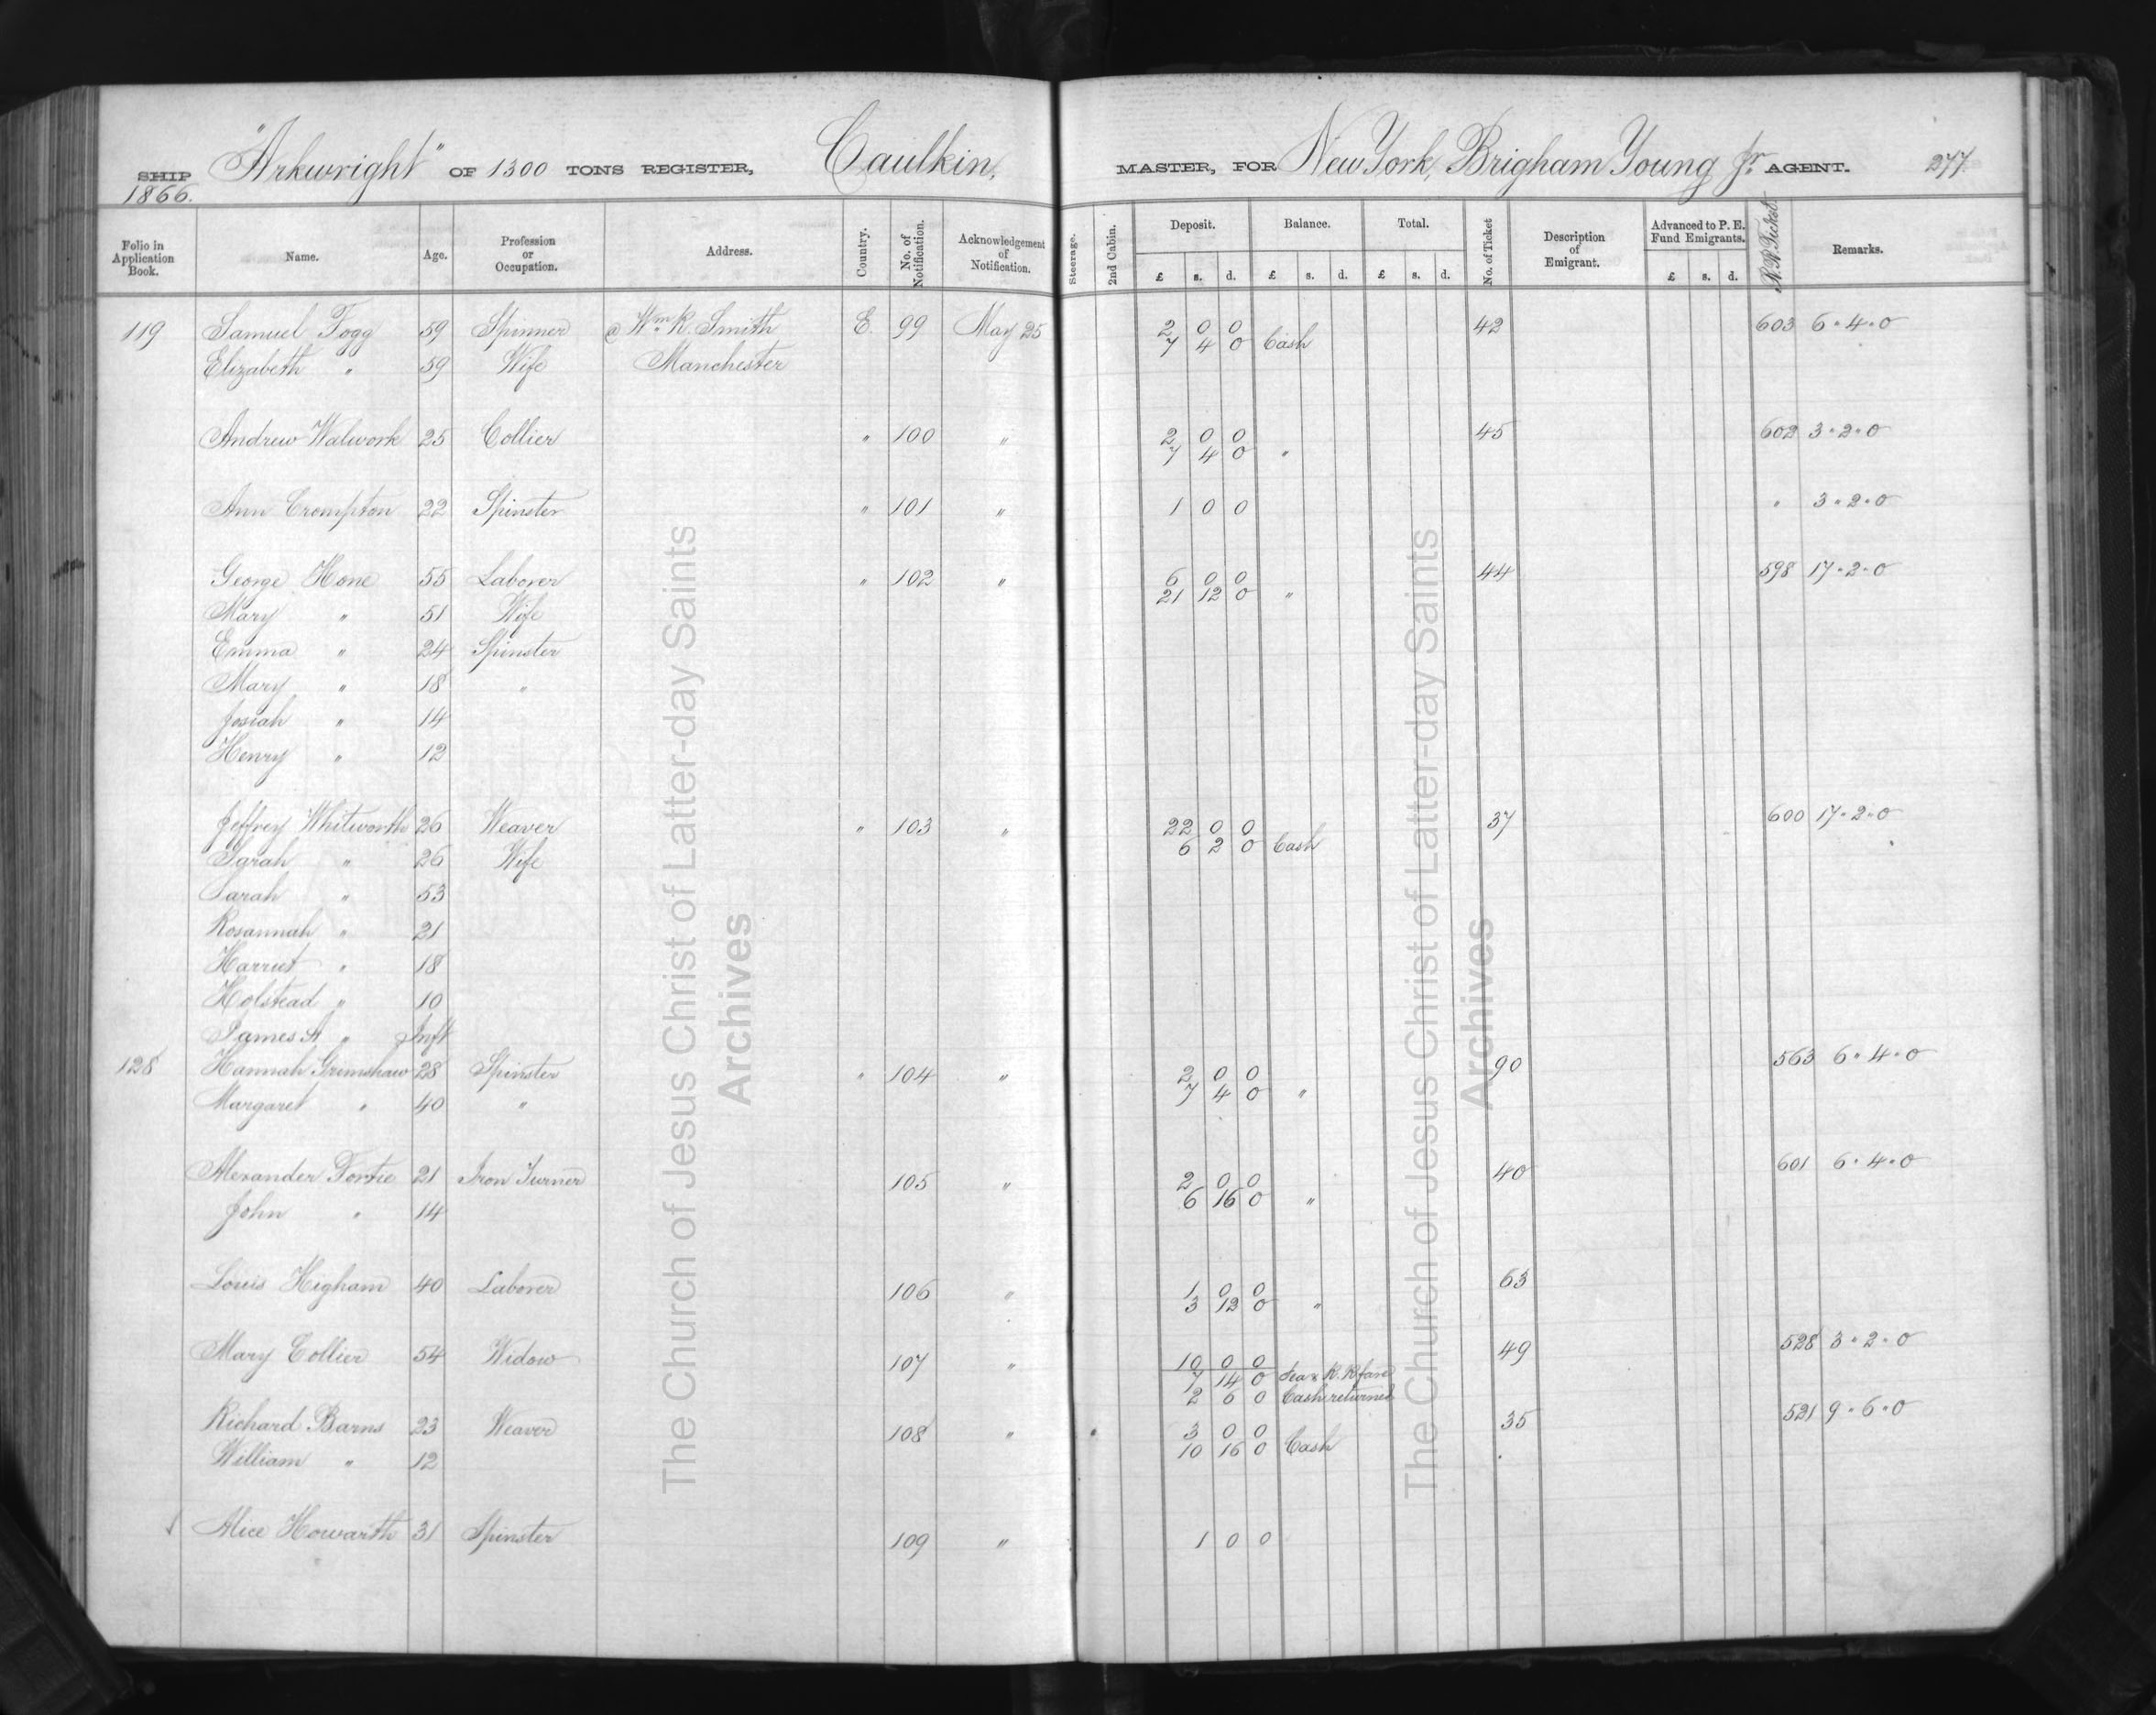 SHIP "Arkwright" OF 1300 TONS REGISTER, Caulkin, MASTER, FOR New York, Brigham Young Jr. AGENT. 277
1866.
Folio in Application Book. Name. Age. Profession or Occupation. Address. Country. No. of Notification. Acknowledgement of Notification. Steerage. 2nd Cabin. Deposit. £ s. d. Balance. £ s. d. Total. £ s. d. No. of Ticket Description of Emigrant. Advanced to P. E. Fund Emigrants. £ s. d. R.R. Ticket. Remarks.
119 Samuel Fogg 59 Spinner @ Wm. R. Smith E. 99 May 25 2 0 0 42 603 6.4.0
7 4 0 Cash
Elizabeth " 59 Wife Manchester
Andrew Walwork 25 Collier " 100 " 2 0 0 45 602 3.2.0
7 4 0 "
Ann Crompton 22 Spinster " 101 " 1 0 0 " 3.2.0
George Hone 55 Laborer " 102 " 6 0 0 44 598 17.2.0
21 12 0 "
Mary " 51 Wife
Emma " 24 Spinster
Mary " 18 "
Josiah " 14
Henry " 12
Jeffrey Whitworth 26 Weaver " 103 " 22 0 0 37 600 17.2.0
6 2 0 Cash
Sarah " 26 Wife
Sarah " 53
Rosannah " 21
Harriet " 18
Holstead " 10
James A " Inft
128 Hannah Grimshaw 28 Spinster " 104 " 2 0 0 90 563 6.4.0
7 4 0 "
Margaret " 40 "
Alexander Fortie 21 Iron Turner 105 " 2 0 0 40 601 6.4.0
6 16 0 "
John " 14
Louis Higham 40 Laborer 106 " 1 0 0 63
3 12 0 "
Mary Collier 54 Widow 107 " 10 0 0 49 528 3.2.0
7 14 0 Sea & R.R fare
2 6 0 Cash returned
Richard Barns 23 Weaver 108 " 3 0 0 35 521 9.6.0
10 16 0 Cash
William " 12
Alice Howarth 31 Spinster 109 " 1 0 0
The Church of Jesus Christ of Latter-day Saints
Archives
The Church of Jesus Christ of Latter-day Saints
Archives